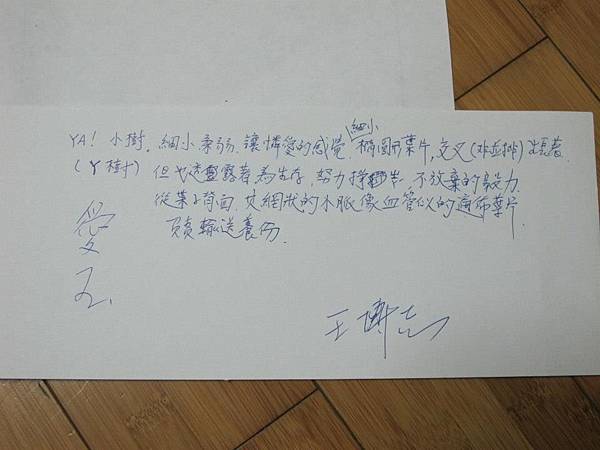 細小
YA! 小樹.細小柔弱.讓憐愛的感覺 橢圓形葉片,交叉(非並排)生長著.
(丫樹) 但也透露著為生存,努力掙扎,不放棄的毅力.
從葉子背面,交網狀的木脈像血管似的遍佈葉片
負責輸送養份.
愛
王